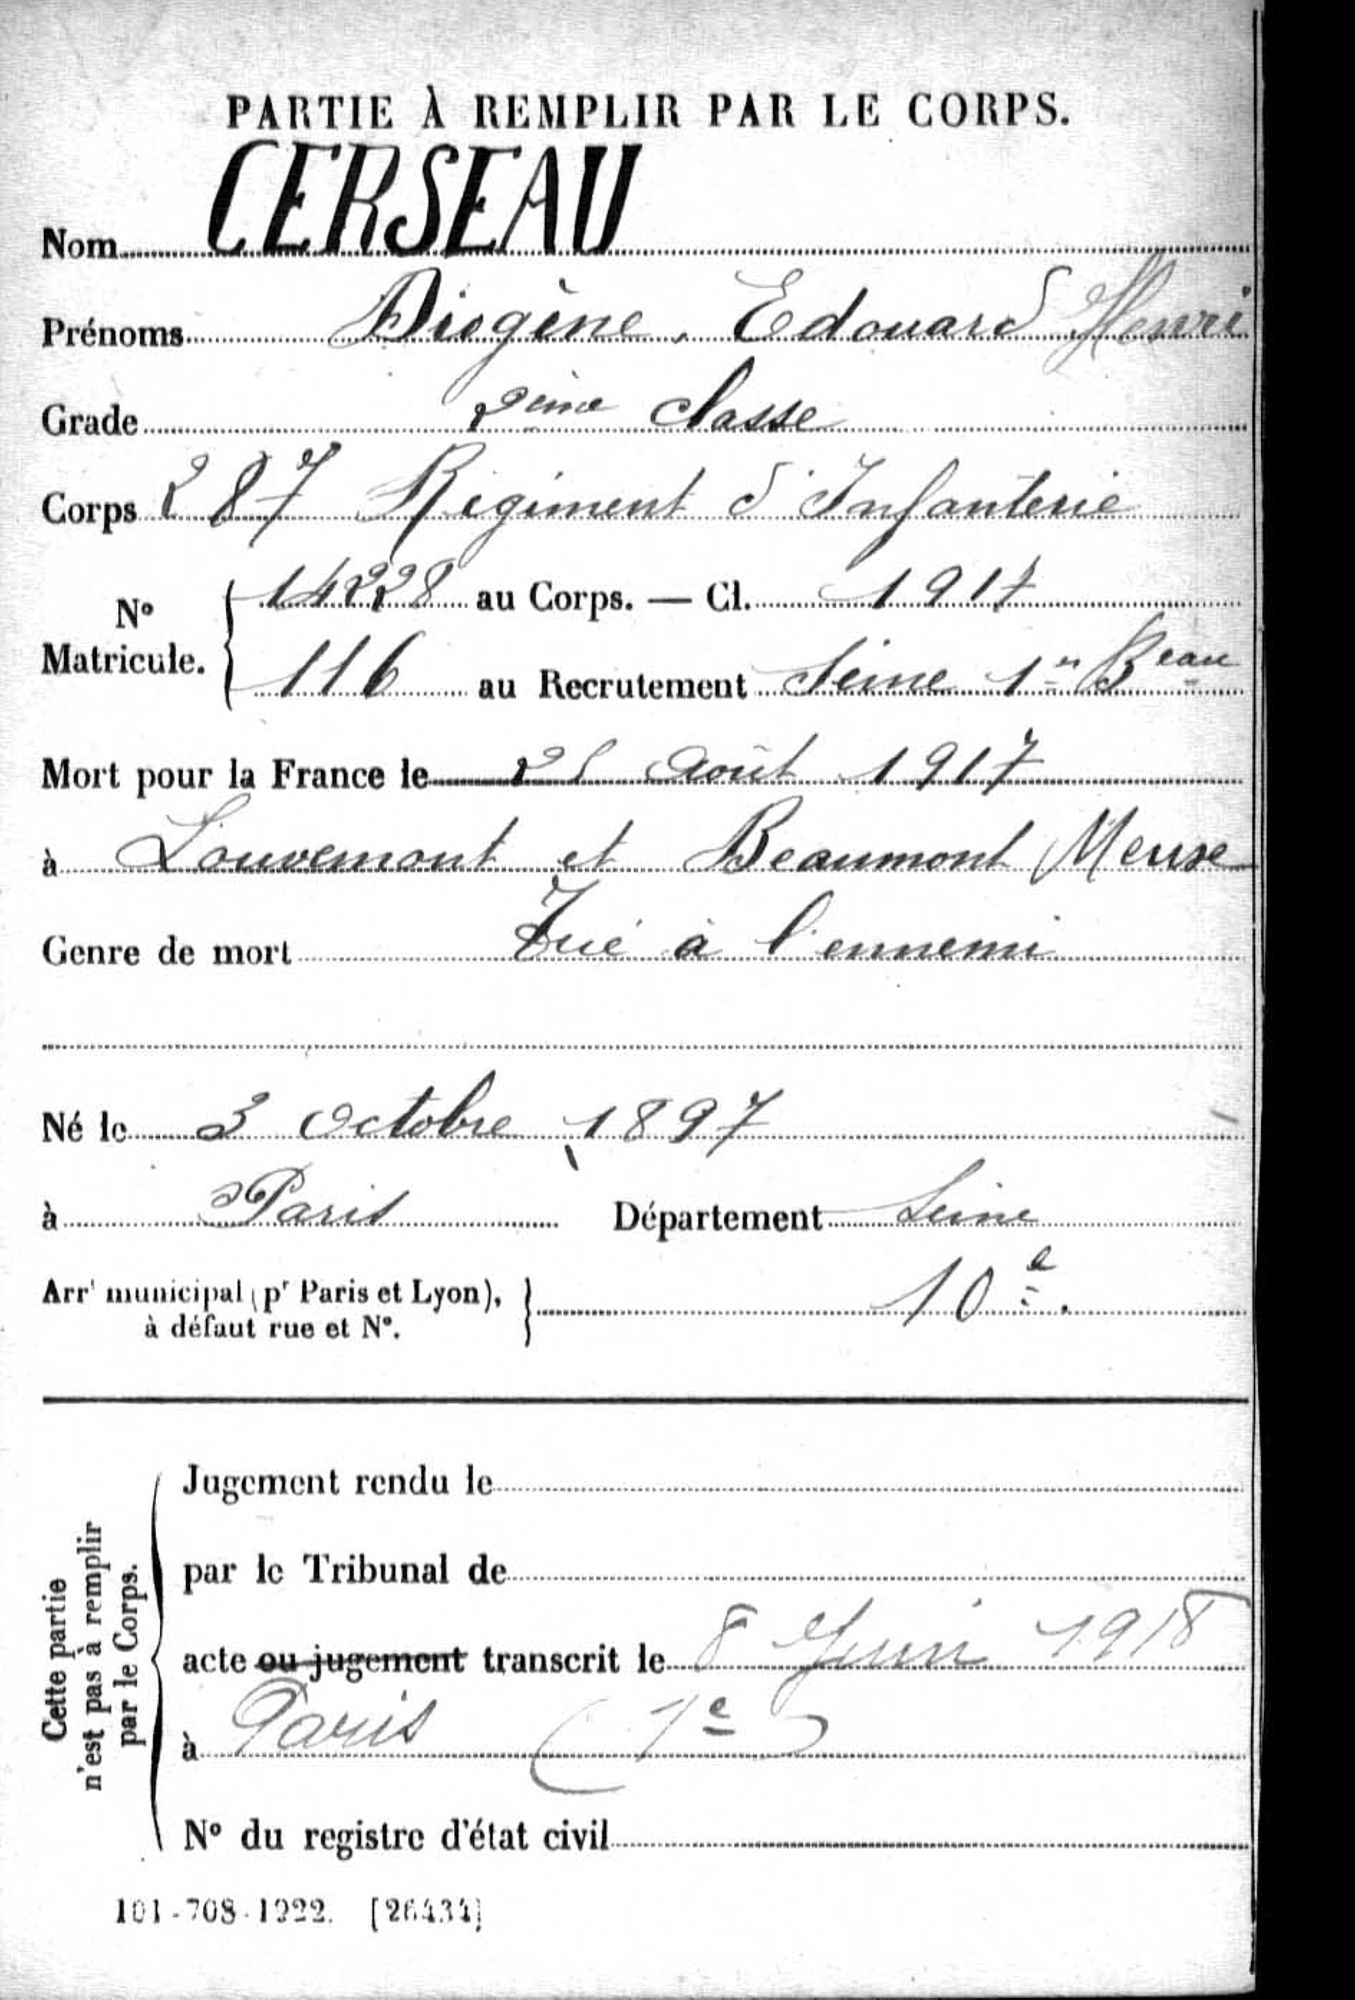 PARTIE À REMPLIR PAR LE CORPS.
Nom CERSEAU
Prénoms Diogène, Edouard Henri
Grade 2ème classe
Corps 287 Régiment d'Infanterie
N° Matricule. 14228 au Corps. — Cl. 1917
116 au Recrutement Seine 1er Beau
Mort pour la France le 25 Août 1917
à Louvemont et Beaumont Meuse
Genre de mort Tué à l'ennemi
Né le 3 Octobre 1897
à Paris Département Seine
Arrt municipal (pr Paris et Lyon), 10e.
à défaut rue et N°.
Cette partie
n'est pas à remplir
par le Corps.
Jugement rendu le
par le Tribunal de
acte ou jugement transcrit le 8 Juin 1918
à Paris (1e)
N° du registre d'état civil
101-708-1922. [26434]